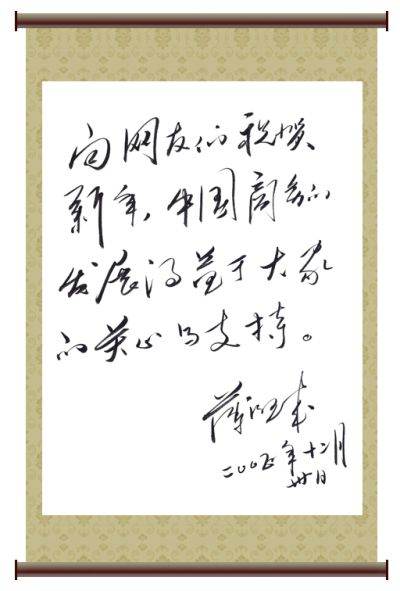 向网友们祝贺
新年,中国商务的
发展得益于大家
的关心与支持。
薄熙来
二〇〇五年十二月
卅日